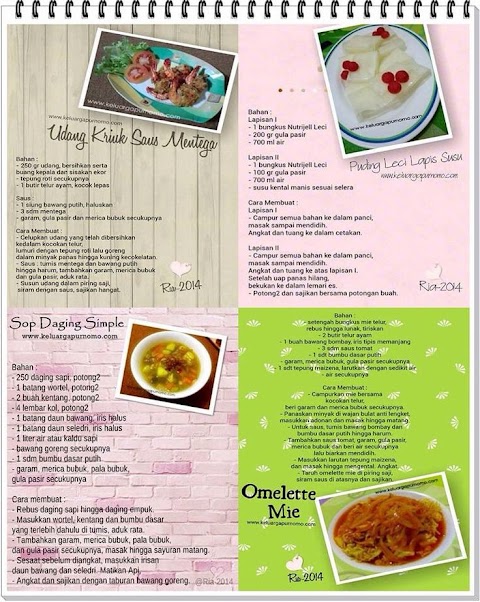 www.keluargapurnomo.com
www.keluargapurnomo.com
Udang Kriuk Saus Mentega
Bahan :
- 250 gr udang, bersihkan serta
buang kepala dan sisakan ekor
- tepung roti secukupnya
- 1 butir telur ayam, kocok lepas
Saus :
- 1 siung bawang putih, haluskan
- 3 sdm mentega
- garam, gula pasir dan merica bubuk secukupnya
Cara Membuat :
- Celupkan udang yang telah dibersihkan
kedalam kocokan telur,
lumuri dengan tepung roti lalu goreng
dalam minyak panas hingga kuning kecokelatan.
- Saus : tumis mentega dan bawang putih
hingga harum, tambahkan garam, merica bubuk
dan gula pasir, aduk rata.
- Susun udang dalam piring saji,
siram dengan saus, sajikan hangat.
Ria-2014
Bahan :
Lapisan I
- 1 bungkus Nutrijell Leci
- 200 gr gula pasir
- 700 ml air
Lapisan II
- 1 bungkus Nutrijell Leci
- 100 gr gula pasir
- 700 ml air
- susu kental manis sesuai selera
Puding Leci Lapis Susu
www.keluargapurnomo.com
Cara Membuat :
Lapisan I
- Campur semua bahan ke dalam panci,
masak sampai mendidih.
Angkat dan tuang ke dalam cetakan.
Lapisan II
- Campur semua bahan ke dalam panci,
masak sampai mendidih.
Angkat dan tuang ke atas lapisan I.
Setelah uap panas hilang,
bekukan ke dalam lemari es.
- Potong2 dan sajikan bersama potongan buah.
Ria-2014
Sop Daging Simple
www.keluargapurnomo.com
Bahan :
- 250 daging sapi, potong2
- 1 batang wortel, potong2
- 2 buah kentang, potong2
- 4 lembar kol, potong2
- 1 batang daun bawang, iris halus
- 1 batang daun seledri, iris halus
- 1 liter air atau kaldu sapi
- bawang goreng secukupnya
- 1 sdm bumbu dasar putih
- garam, merica bubuk, pala bubuk,
gula pasir secukupnya
Cara membuat :
- Rebus daging sapi hingga daging empuk.
- Masukkan wortel, kentang dan bumbu dasar
yang terlebih dahulu di tumis, aduk rata.
- Tambahkan garam, merica bubuk, pala bubuk,
dan gula pasir secukupnya, masak hingga sayuran matang.
- Sesaat sebelum diangkat, masukkan irisan
daun bawang dan seledri. Matikan Api.
- Angkat dan sajikan dengan taburan bawang goreng.
@Ria-2014
Bahan :
- setengah bungkus mie telur,
rebus hingga lunak, tiriskan
- 2 butir telur ayam
- 1 buah bawang bombay, iris tipis memanjang
- 3 sdm saus tomat
- 1 sdt bumbu dasar putih
- garam, merica bubuk, gula pasir secukupnya
- 1 sdt tepung maizena, larutkan dengan sedikit air
- air secukupnya
Cara Membuat :
- Campurkan mie bersama
kocokan telur,
beri garam dan merica bubuk secukupnya.
- Panaskan minyak di wajan bulat anti lengket,
masukkan adonan dan masak hingga matang.
- Untuk saus, tumis bawang bombay dan
bumbu dasar putih hingga harum.
- Tambahkan saus tomat, garam, gula pasir,
merica bubuk dan beri air secukupnya
lalu biarkan mendidih.
- Masukkan larutan tepung maizena,
dan masak hingga mengental. Angkat.
- Taruh omelette mie di piring saji,
siram saus di atasnya dan sajikan.
Omelette
Mie
www.keluargapurnomo.com
www.keluargapurnomo.com
Ria-2014